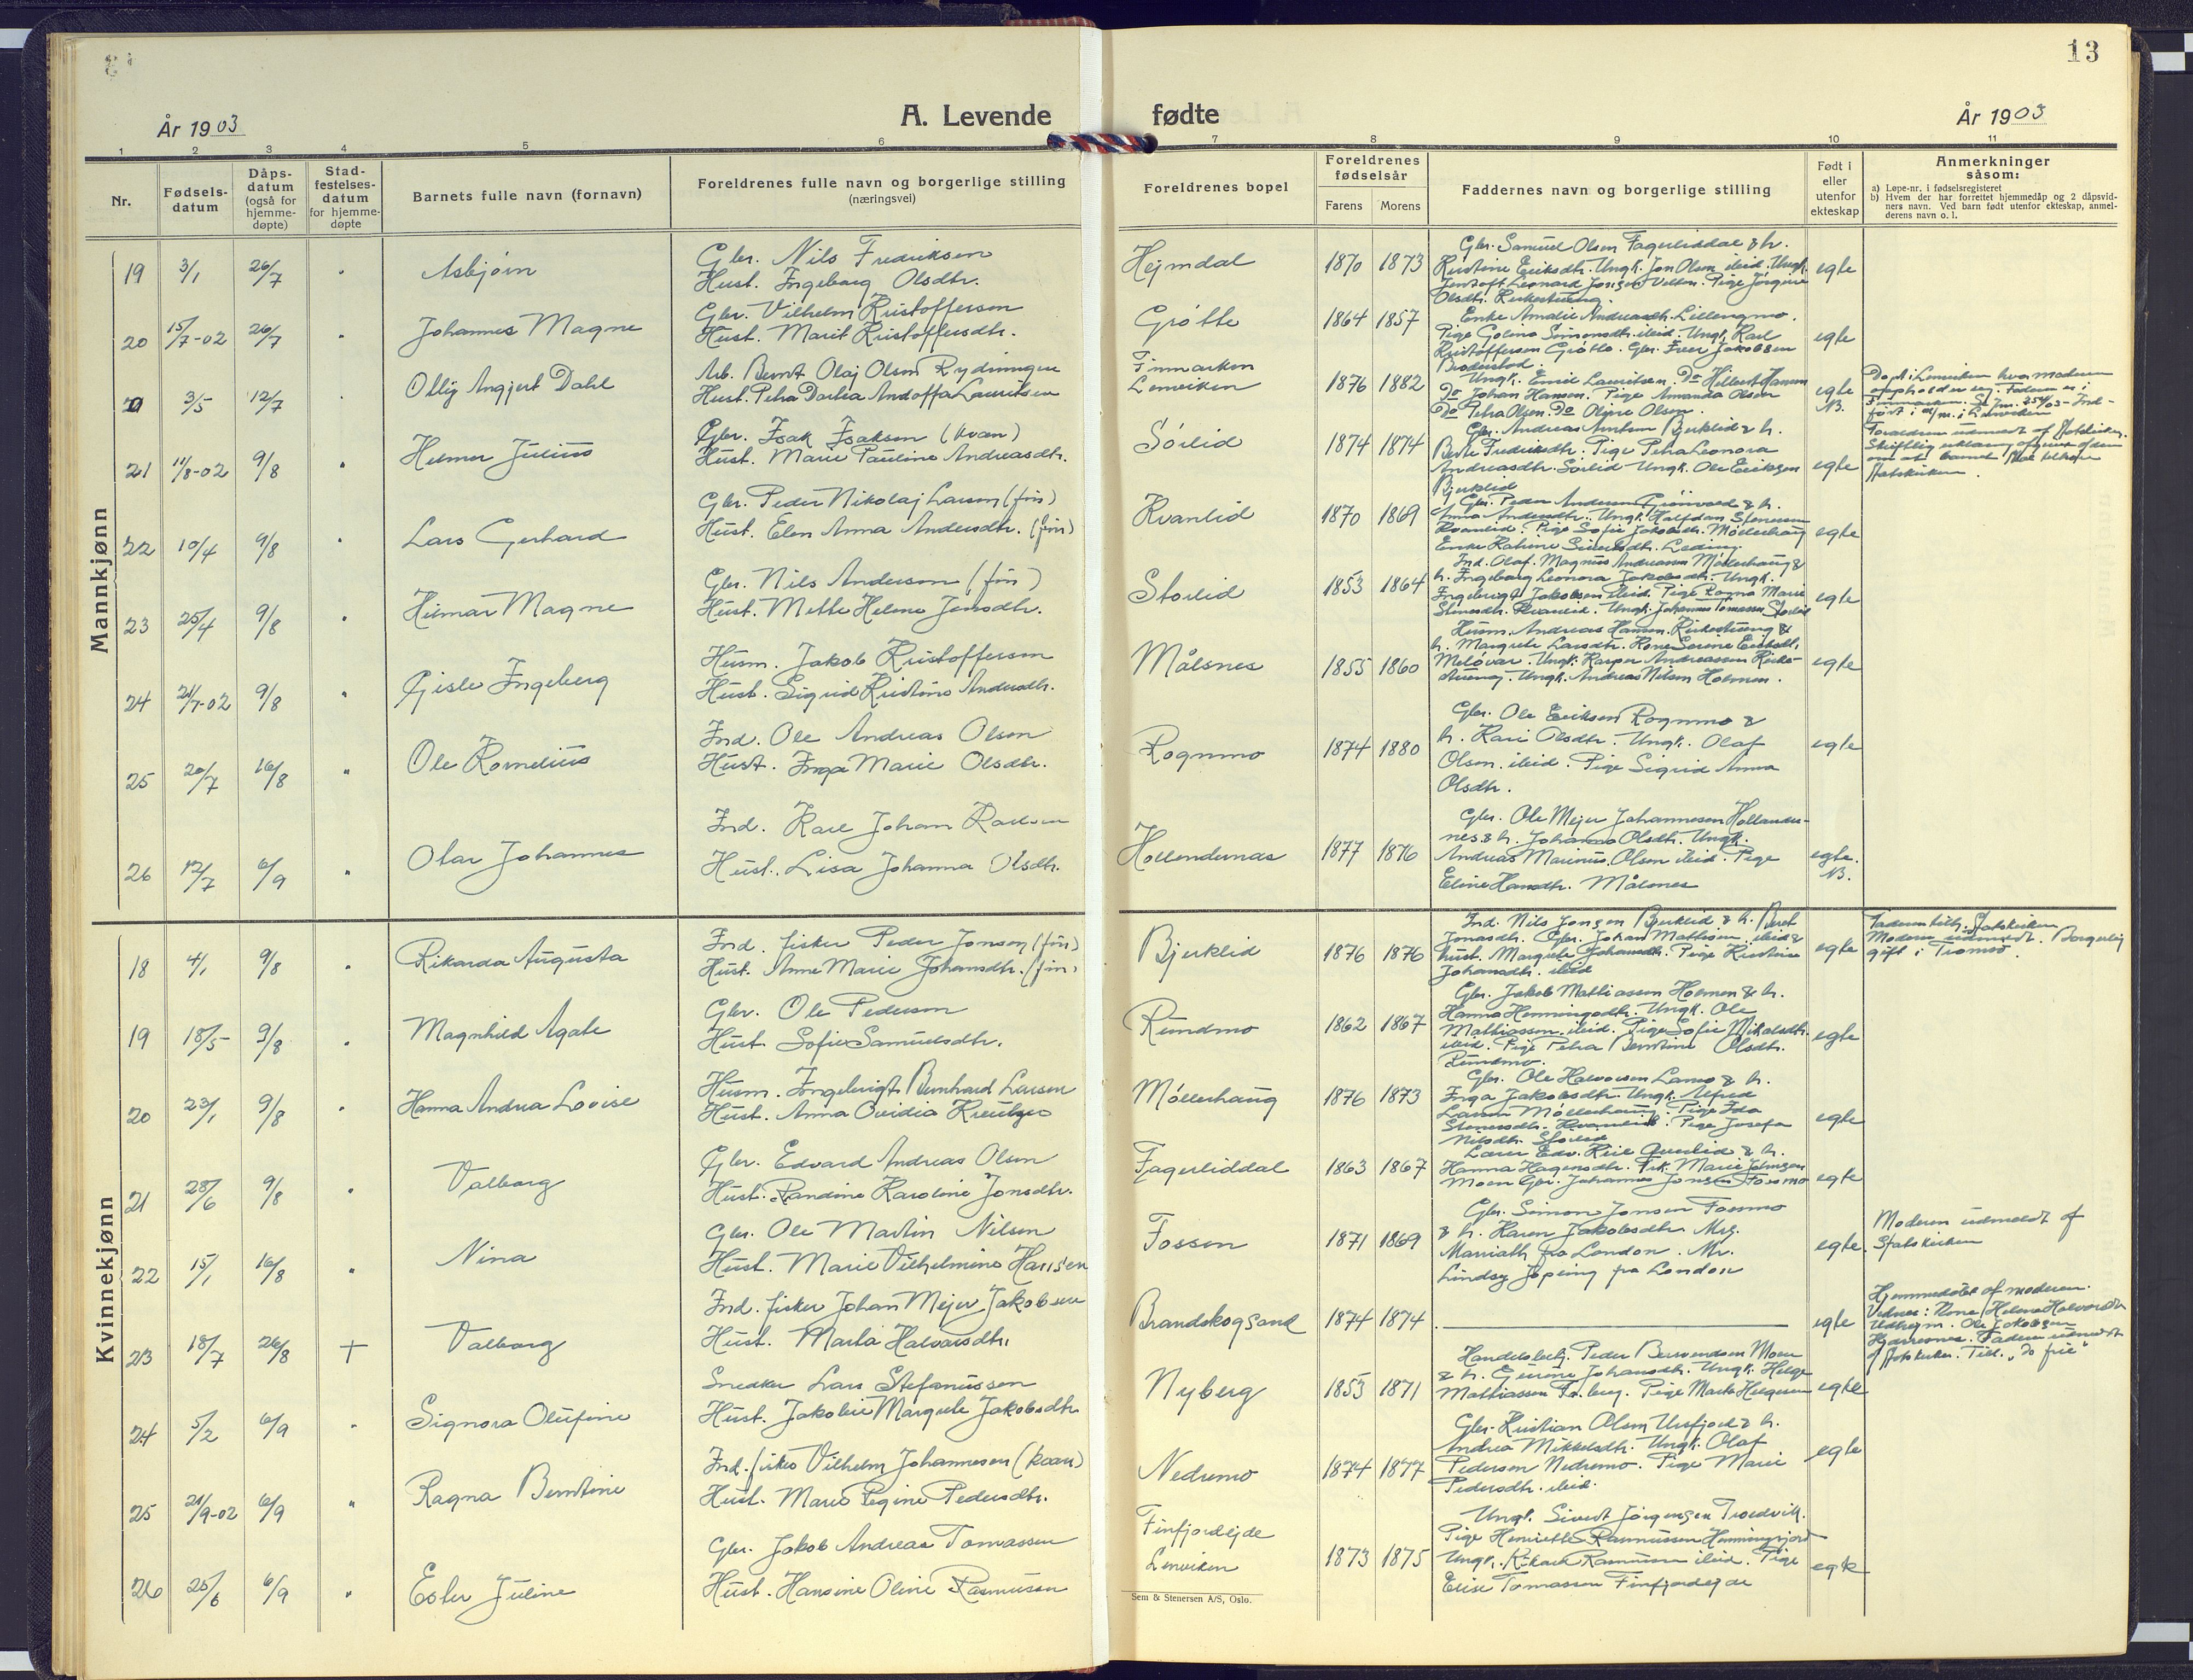 13
År 1903
A. Levende
fødte
År 1903
1 2 3 4 5 6 7 8 9 10 11
Nr.
Fødsels-
datum
Dåps-
datum
(også for
hjemme-
døpte)
Stad-
festelses-
datum
for hjemme-
døpte
Barnets fulle navn (fornavn)
Foreldrenes fulle navn og borgerlige stilling
(næringsvei)
Foreldrenes bopel
Foreldrenes
fødselsår
Farens Morens
Faddernes navn og borgerlige stilling
Født i
eller
utenfor
ekteskap
Anmerkninger
såsom:
a) Løpe-nr. i fødselsregisteret
b) Hvem der har forrettet hjemmedåp og 2 dåpsvid-
ners navn. Ved barn født utenfor ekteskap, anmel-
derens navn o. l.
Mannkjønn
19 3/1 26/7 " Asbjørn
Gbr. Nils Fredriksen
Hust. Ingeborg Olsdtr.
Hejmdal 1870 1873
Gbr. Samuel Olsen Fagerliddal & h.
Kristine Eriksdtr. Ungk. Jon Olsen ibid. Ungk.
Jentoft Leonard Jonsen Pige Jørgine
Olsdtr.
egte
20 15/7-02 26/7 " Johannes Magne
Gbr. Vilhelm Kristoffersen
Hust. Marit Kristoffersdtr.
Grøtte 1864 1857
Enke Amalie Andreasdtr. Lillengmo.
Pige Golina Simonsdtr. ibid. Ungk. Karl
Kristoffersen Grøtte. Gbr. Jakobsen
egte
3/5 12/7 Olly Angjert Dahl
Arb. Bernt Olaj Olsen Rydningen
Hust. Petra Dortea Andoffa Lauritsen
Finmarken
Lenviken
1876 1882
Ungk. Emil Lauritsen. Do Hilbert Hansen
Do Johan Hansen. Pige Amanda Olsen
Do Petra Olsen. Do Olgine Olsen.
egte
N3.
Døpt i Lenviken hvor moderen
opholder seg. Faderen er i
Finmarken.
21 11/8-02 9/8 " Helmer Julius
Gbr. Isak Isaksen (kvæn)
Hust. Marie Pauline Andreasdtr.
Sørlid 1874 1874
Gbr. Andreas Bjerklid & h.
Berte Fredriksdtr. Pige Petra Leonora
Andreasdtr. Sørlid Ungk. Ole Eriksen
Bjerklid
egte
Forældrene udmeldt af Statskirken.
Skriftlig
om at barnet skal tilhøre
Statskirken.
22 10/4 9/8 " Lars Gerhard
Gbr. Peder Nikolaj Larsen (fin)
Hust. Elen Anna Andersdtr. (fin)
Kvanlid 1870 1869
Gbr. Peder Andersen Grønvold & h.
Anna Andersdtr. Ungk. Halfdan Stenersen
Kvanlid. Pige Sofie Jakobsdtr. Møllerhaug
Enke Katrine Sivertsdtr.
egte
23 25/4 9/8 " Hilmar Magne
Gbr. Nils Andersen (fin)
Hust. Mette Helene Jensdtr.
Storlid 1853 1864
Ind. Olaf Magnus Andreasen Møllerhaug &
h. Ingeborg Leonora Jakobsdtr. Ungk.
Ingebrigt Jakobsen ibid. Pige Ragna Marie
Stenersdtr. Kvanlid. Ungk. Johannes Tomassen Storlid
egte
24 21/7-02 9/8 " Gisle Ingeberg
Husm. Jakob Kristoffersen
Hust. Sigrid Kristine Andersdtr.
Målsnes 1855 1860
Husm. Andreas Hansen &
h. Margrete Larsdtr. Kone Serine Eriksdtr.
Meløvær. Ungk. Kasper Andreassen
Ungk. Andreas Nilsen Holmen.
egte
25 20/7 16/8 " Ole Kornelius
Ind. Ole Andreas Olsen
Hust. Inga Marie Olsdtr.
Rognmo 1874 1880
Gbr. Ole Eriksen Rognmo &
h. Kari Olsdtr. Ungk. Olaf
Olsen. ibid. Pige Sigrid Anna
Olsdtr.
egte
26 12/7 6/9 " Olav Johannes
Ind. Karl Johan Karlsen
Hust. Lisa Johanna Olsdtr.
Hollendernæs 1877 1876
Gbr. Ole Mejer Johannesen Hollender-
nes & h. Johanna Olsdtr. Ungk.
Andreas Marinus Olsen ibid. Pige
Eline Hansdtr. Målsnes
egte.
N3.
Kvinnekjønn
18 4/1 9/8 " Rikarda Augusta
Ind. fisker Peder Jonsen (fin)
Hust. Anne Marie Johansdtr. (fin)
Bjerklid 1876 1876
Ind. Nils Jonsen Bjerklid & h. Berit
Jonasdtr. Gbr. Johan Mathisen ibid &
hust. Margrete Johansdtr. Pige Kristine
Johansdtr. ibid
egte
Faderen tilh. Statskirken
Moderen udmeldt. Borgerlig
gift i Tromsø.
19 18/5 9/8 " Magnhild Agate
Gbr. Ole Pedersen
Hust. Sofie Samuelsdtr.
Rundmo 1862 1867
Gbr. Jakob Mathiassen Holmen & h.
Hanna Henningsdtr. Ungk. Ole
Mathiassen. ibid. Pige Sofie Nikolsdtr.
ibid. Pige Petra Berntine Olsdtr.
Rundmo.
egte
20 23/1 9/8 " Hanna Andrea Lovise
Husm. Ingebrigt Bernhard Larsen
Hust. Anna Ovidia Kreutzer
Møllerhaug 1876 1873
Gbr. Ole Halvorsen Lamo & h.
Inga Jakobsdtr. Ungk. Alfred
Larsen Møllerhaug. Pige Ida
Stenersdtr. Kvanlid. Pige Josefa
Nilsdtr. Storlid
egte
21 28/6 9/8 " Valborg
Gbr. Edvard Andreas Olsen
Hust. Randine Karoline Jonsdtr.
Fagerliddal 1863 1867
Lærer Edv. & h.
Hanna Hagensdtr. Frk. Marie Johnsen
Moen Gbr. Johannes Jonsen Fossmo
egte
22 15/1 16/8 " Nina
Gbr. Ole Martin Nilsen
Hust. Marie Vilhelmine Hansen
Fossen 1871 1869
Gbr. Simon Jonsen Fossmo
& h. Karen Jakobsdtr. Mrs.
Marriath fra London. Mr.
Lindsay fra London
egte.
Moderen udmeldt af
Statskirken
23 18/7 26/8 + Valborg
Ind. fisker Johan Mejer Jakobsen
Hust. Marta Halvorsdtr.
Brandskogsand 1874 1874
egte
Hjemmedøbt af moderen.
Vidner: Kone Helene Halvorsdtr.
Ole Jakobsen
Faderen udmeldt
af Statskirken. Tilh. "De frie"
24 5/2 6/9 " Signora Olufine
Snedker Lars Stefanussen
Hust. Jakobie Margrete Jakobsdtr.
Nyberg 1853 1871
Handelsbetj. Peder Berventsen Moen
& h. Johansdtr. Ungk. Helge
Mathiassen Pige Marta Helgesen
egte
25 21/9-02 6/9 " Ragna Berntine
Ind. fisker Vilhelm Johannesen (kvæn)
Hust. Marie Regine Pedersdtr.
Nedremo 1874 1877
Gbr. Kristian Olsen Ursfjord & h.
Andrea Mikkelsdtr. Ungk. Olaf
Pedersen Nedremo. Pige Marie
Pedersdtr. ibid.
egte
26 25/6 6/9 " Ester Juline
Gbr. Jakob Andreas Tomassen
Hust. Hansine Oline Rasmussen
Finfjordejde
Lenviken
1873 1875
Ungk. Sivert Jørgensen Trædvik.
Pige Henriette Rasmussen
Ungk. Rikard Rasmussen ibid. Pige
Elise Tomassen Finfjordejde
egte
Sem & Stenersen A/S, Oslo.